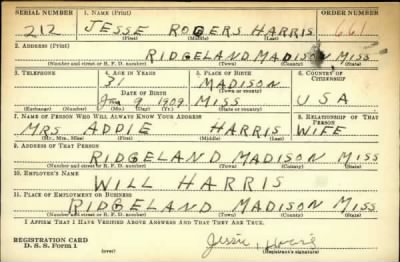 SERIAL NUMBER 1. NAME (Print) ORDER NUMBER
212 JESSE ROGERS HARRIS 661
(First) (Middle) (Last)
2. ADDRESS (Print)
RIDGELAND MADISON MISS
(Number and street or R. F. D. number) (Town) (County) (State)
3. TELEPHONE 4. AGE IN YEARS 5. PLACE OF BIRTH 6. COUNTRY OF CITIZENSHIP
31 MADISON
DATE OF BIRTH (Town or county)
Jan 9 1909 MISS USA
(Exchange) (Number) (Mo.) (Day) (Yr.) (State or country)
7. NAME OF PERSON WHO WILL ALWAYS KNOW YOUR ADDRESS 8. RELATIONSHIP OF THAT PERSON
MRS ADDIE HARRIS WIFE
(Mr., Mrs., Miss) (First) (Middle) (Last)
9. ADDRESS OF THAT PERSON
RIDGELAND MADISON MISS
(Number and street or R. F. D. number) (Town) (County) (State)
10. EMPLOYER'S NAME
WILL HARRIS
11. PLACE OF EMPLOYMENT OR BUSINESS
RIDGELAND MADISON MISS
(Number and street or R. F. D. number) (Town) (County) (State)
I AFFIRM THAT I HAVE VERIFIED ABOVE ANSWERS AND THAT THEY ARE TRUE.
REGISTRATION CARD
D. S. S. Form 1 (over) (Registrant's signature)